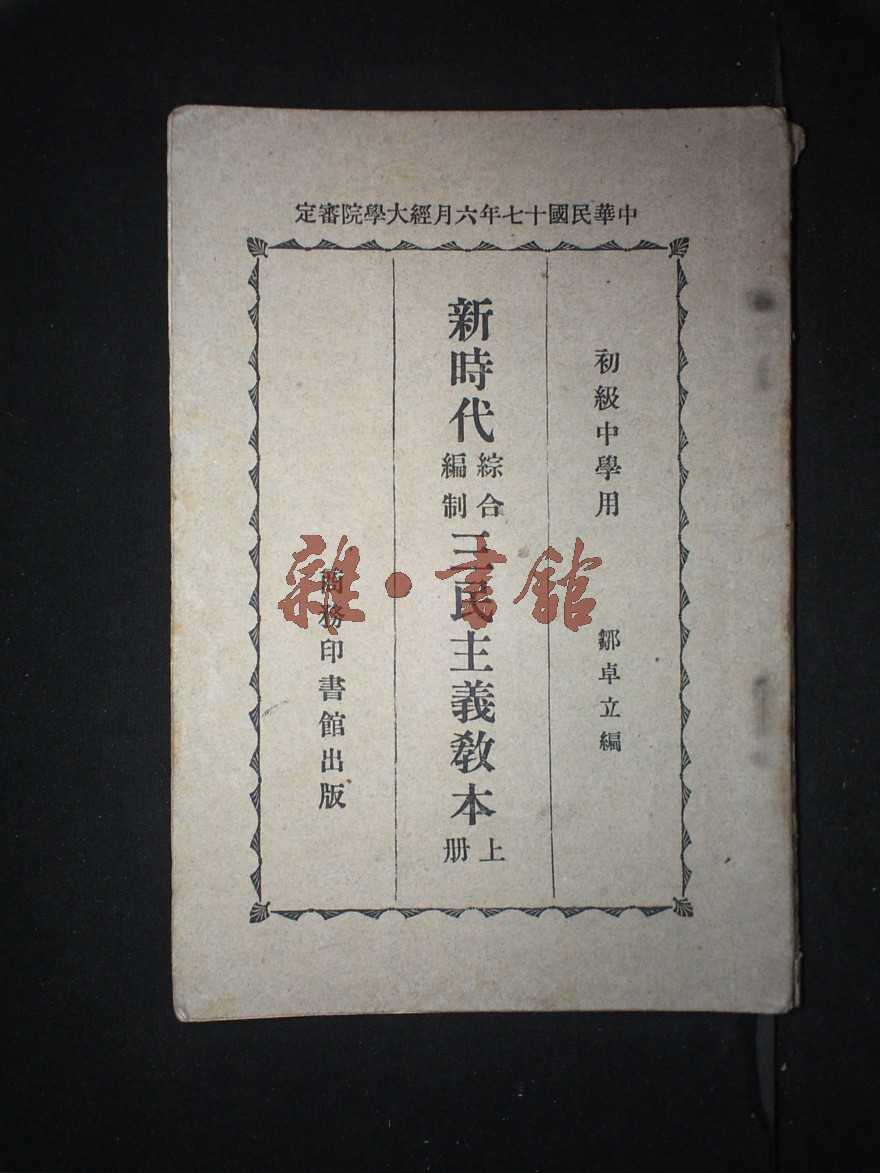 中華民國十七年六月經大學院審定
初級中學用
鄒卓立編
新時代
綜合
編制
三民主義教本
上
册
商務印書館出版
雜·書館